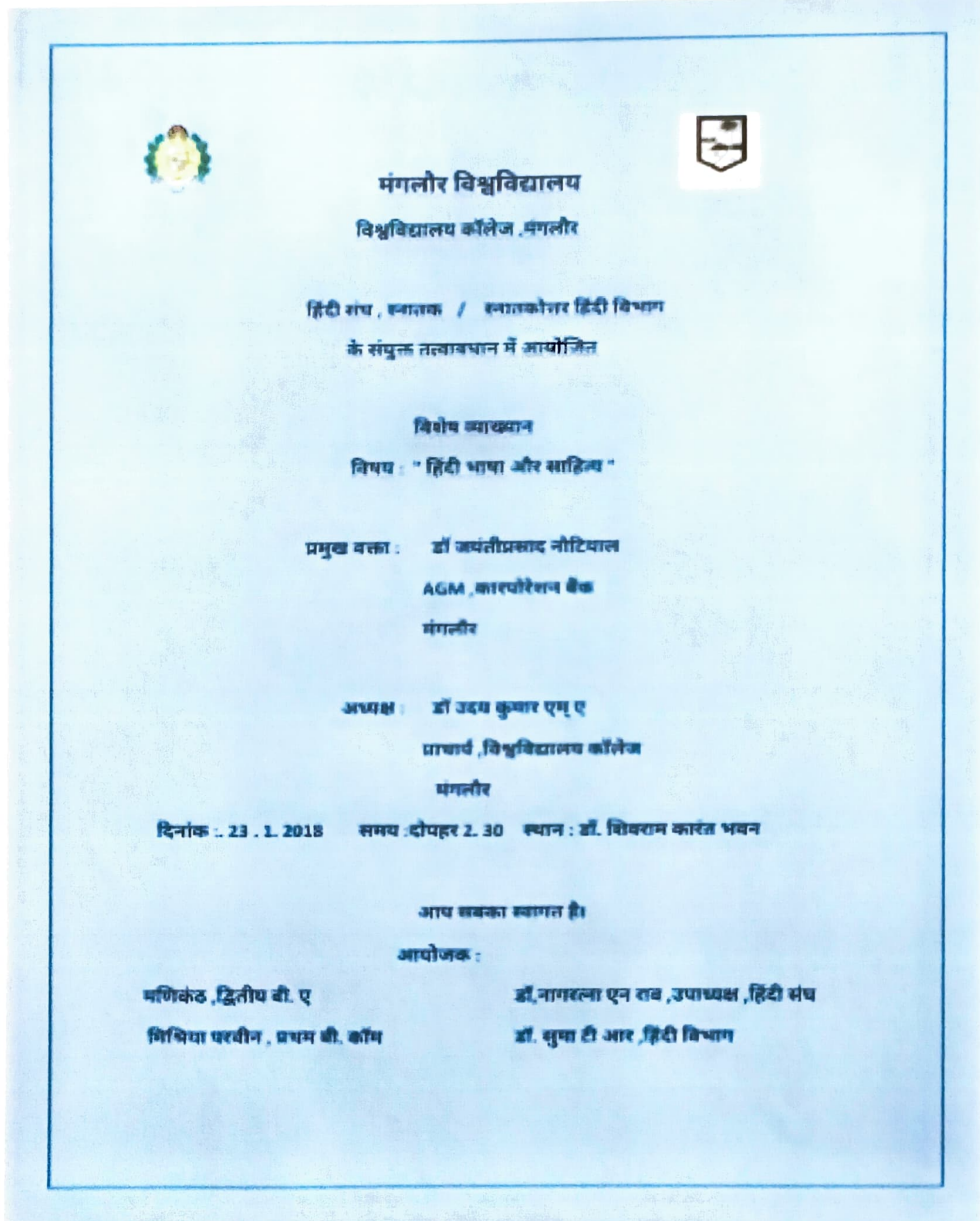 मंगलौर विश्वविद्यालय
विश्वविद्यालय कॉलेज ,मंगलौर
हिंदी संघ , स्नातक / स्नातकोत्तर हिंदी विभाग
के संयुक्त तत्वावधान में आयोजित
विशेष व्याख्यान
विषय : " हिंदी भाषा और साहित्य "
प्रमुख वक्ता : डॉ जयंतीप्रसाद नौटियाल
AGM ,कारपोरेशन बैंक
मंगलौर
अध्यक्ष : डॉ उदय कुमार एम् ए
प्राचार्य ,विश्वविद्यालय कॉलेज
मंगलौर
दिनांक :. 23 . 1. 2018 समय :दोपहर 2. 30 स्थान : डॉ. शिवराम कारंत भवन
आप सबका स्वागत है।
आयोजक :
मणिकंठ ,द्वितीय बी. ए डॉ.नागरत्ना एन राव ,उपाध्यक्ष ,हिंदी संघ
परवीन , प्रथम बी. कॉम डॉ. सुमा टी आर ,हिंदी विभाग